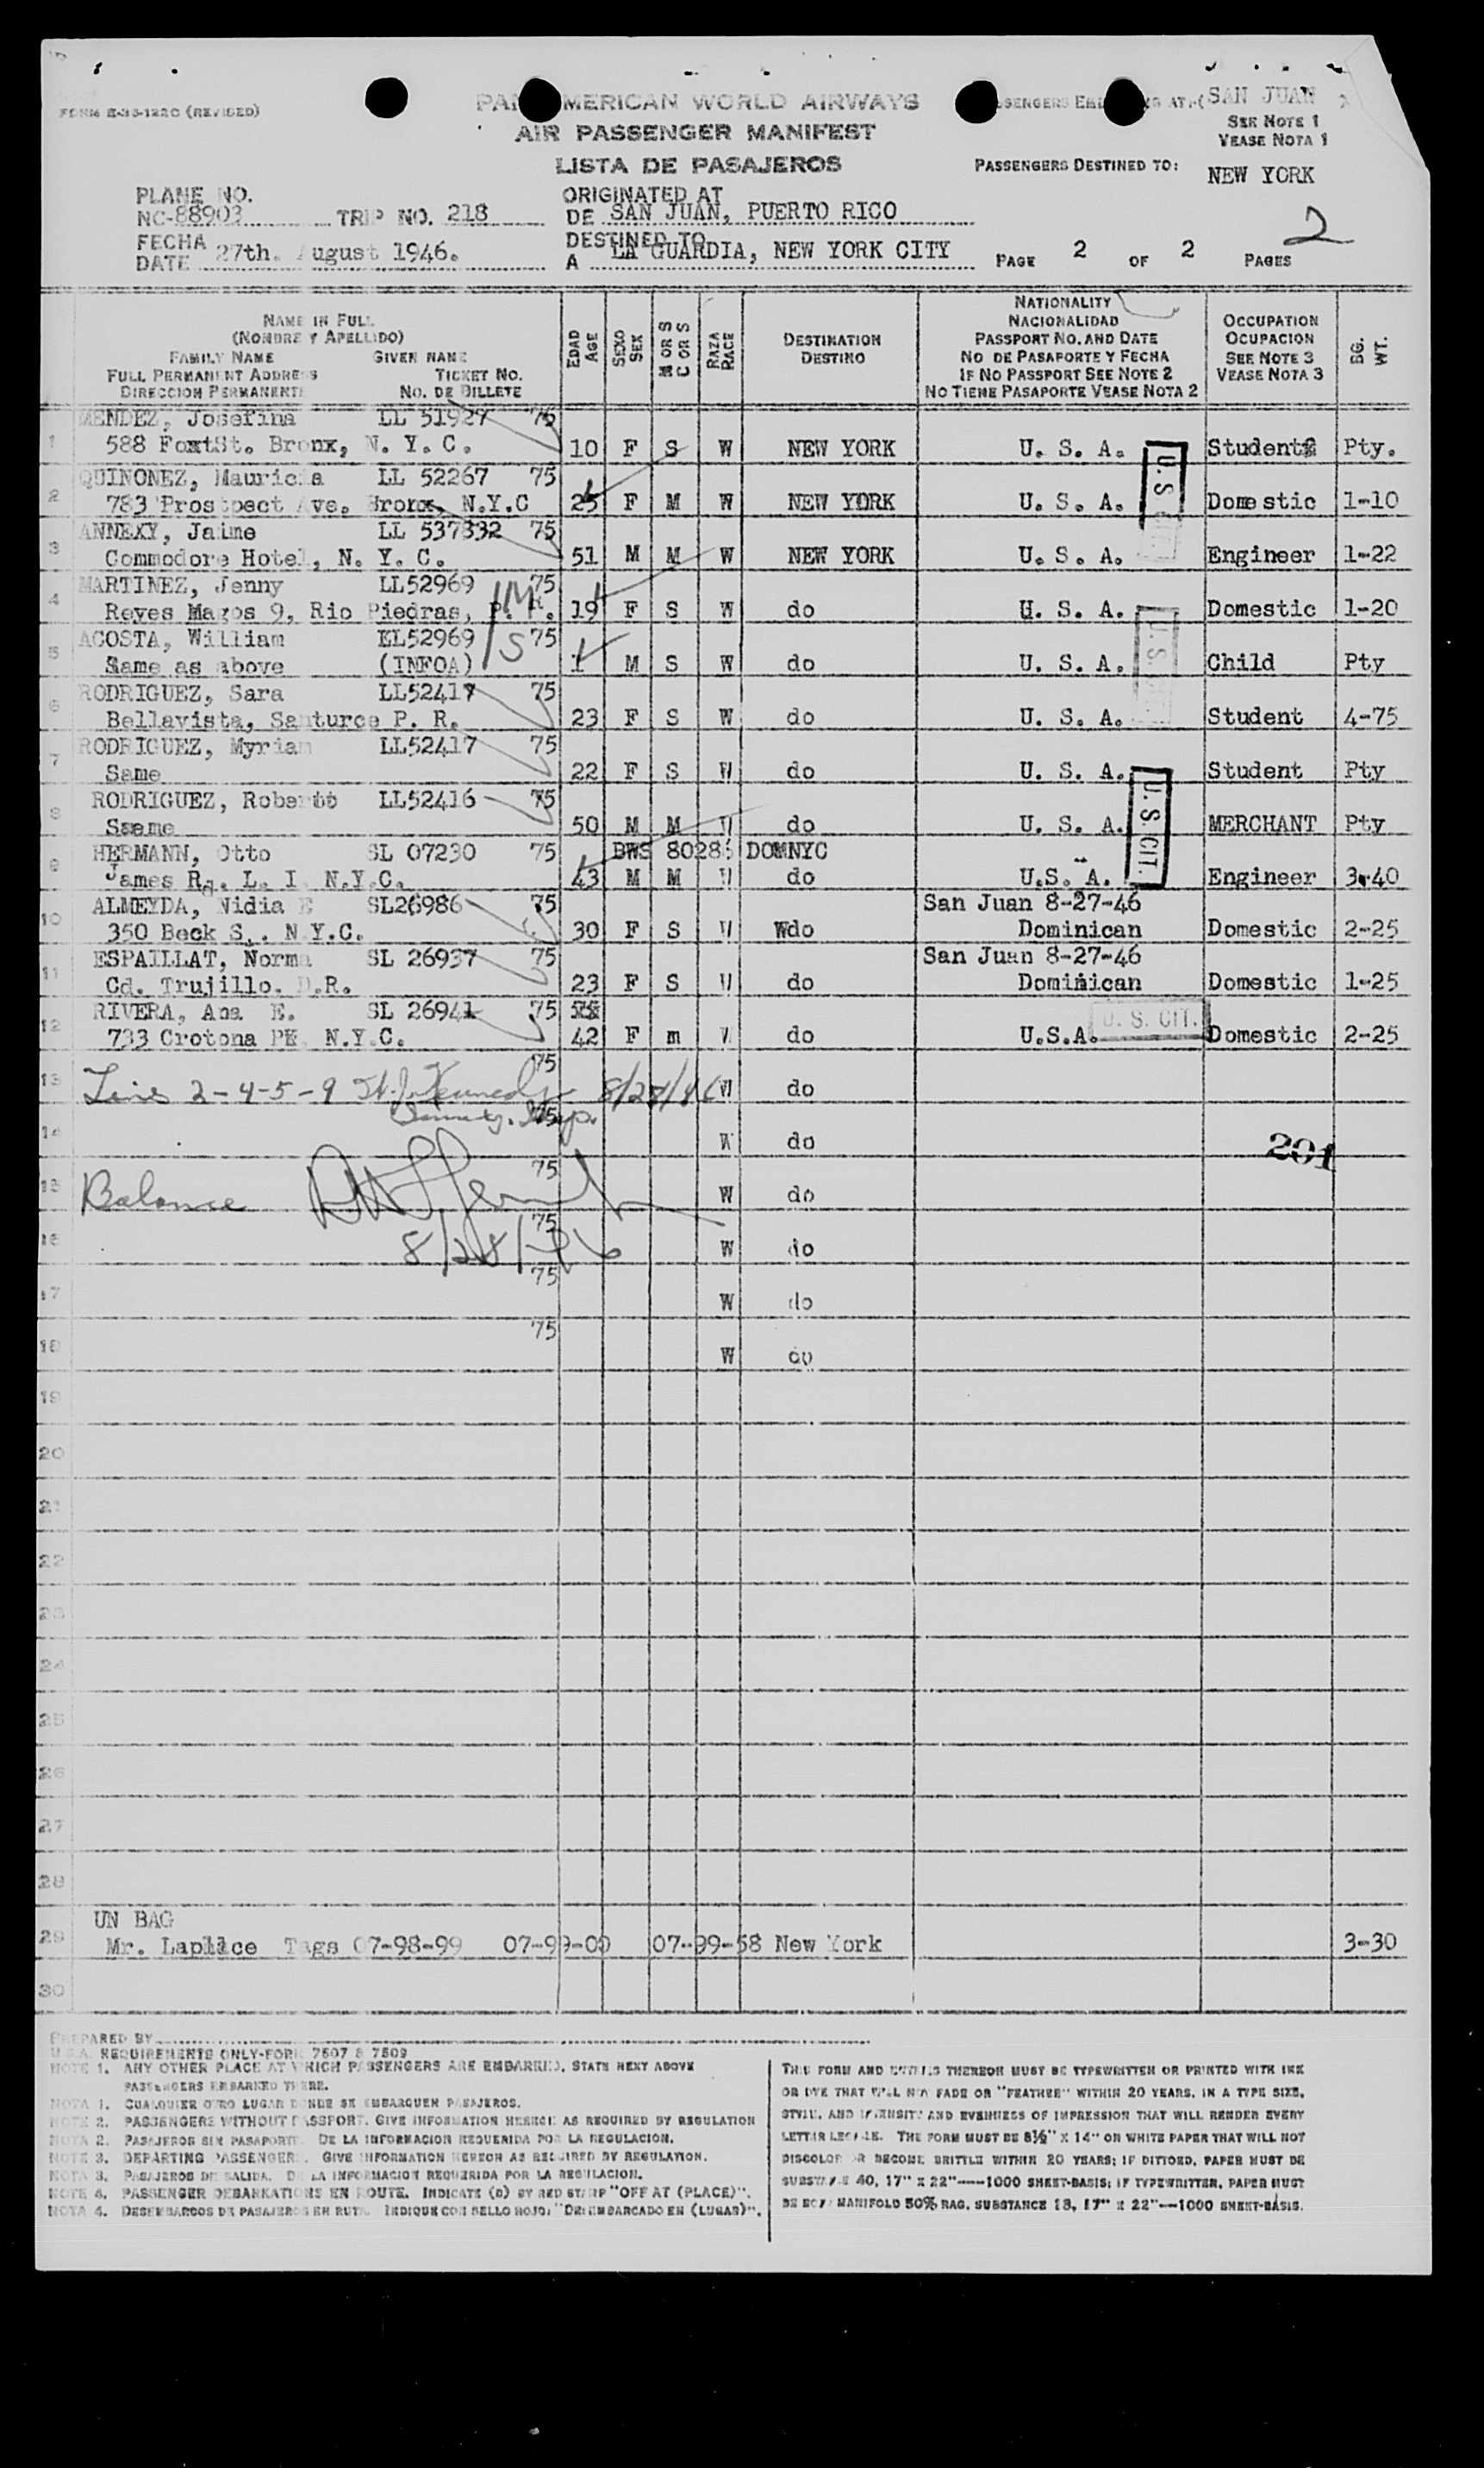 FORM E-33-122C (REVISED)
PAN AMERICAN WORLD AIRWAYS
AIR PASSENGER MANIFEST
LISTA DE PASAJEROS
SAN JUAN
SEE NOTE 1
VEASE NOTA 1
PASSENGERS DESTINED TO:
NEW YORK
PLANE NO.
NC-88903 TRIP NO. 218
FECHA
DATE 27th. August 1946.
ORIGINATED AT
DE SAN JUAN, PUERTO RICO
DESTINED TO
A LA GUARDIA, NEW YORK CITY
PAGE 2 OF 2 PAGES
2
NAME IN FULL
(NOMBRE Y APELLIDO)
FAMILY NAME GIVEN NAME
FULL PERMANENT ADDRESS TICKET NO.
DIRECCION PERMANENTE NO. DE BILLETE
EDAD
AGE
SEXO
SEX
M OR S
C OR S
RAZA
RACE
DESTINATION
DESTINO
NATIONALITY
NACIONALIDAD
PASSPORT NO. AND DATE
NO DE PASAPORTE Y FECHA
IF NO PASSPORT SEE NOTE 2
NO TIENE PASAPORTE VEASE NOTA 2
OCCUPATION
OCUPACION
SEE NOTE 3
VEASE NOTA 3
BG.
WT.
MENDEZ, Josefina LL 51927 75
1 588 FoxtSt. Bronx, N. Y. C. 10 F S W NEW YORK U. S. A. Student Pty.
QUINONEZ, Mauricia LL 52267 75
2 783 Prospect Ave. Bronx, N.Y.C 25 F M W NEW YORK U. S. A. Domestic 1-10
U.S.
ANNEXY, Jaime LL 537332 75
3 Commodore Hotel, N. Y. C. 51 M M W NEW YORK U. S. A. Engineer 1-22
MARTINEZ, Jenny LL52969 75
4 Reyes Magos 9, Rio Piedras, P. R. 19 F S W do U. S. A. Domestic 1-20
ACOSTA, William LL52969 75
5 Same as above (INFOA) 1 M S W do U. S. A. Child Pty
U.S.
RODRIGUEZ, Sara LL52417 75
6 Bellavista, Santurce P. R. 23 F S W do U. S. A. Student 4-75
RODRIGUEZ, Myriam LL52417 75
7 Same 22 F S W do U. S. A. Student Pty
RODRIGUEZ, Roberto LL52416 75
8 Same 50 M M W do U. S. A. MERCHANT Pty
U.S.CIT.
HERMANN, Otto SL 07230 75 BWS 80286 DOMNYC
9 James Rd. L. I N.Y.C. 43 M M W do U.S. A. Engineer 3-40
ALMEYDA, Nidia E SL26986 75 San Juan 8-27-46
10 350 Beck S. N.Y.C. 30 F S W Wdo Dominican Domestic 2-25
ESPAILLAT, Norma SL 26937 75 San Juan 8-27-46
11 Cd. Trujillo. D.R. 23 F S W do Dominican Domestic 1-25
RIVERA, Ana E. SL 26941 75
12 733 Crotona PK N.Y.C. 42 F m W do U.S.A. U. S. CIT. Domestic 2-25
75
13 Lines 2-4-5-9 Kennedy 8/28/46 W do
75
14 W do 201
75
15 Balance W do
75
16 8/28/46 W do
75
17 W do
75
18 W do
19
20
21
22
23
24
25
26
27
28
UN BAG
29 Mr. Laplace Tags 07-98-99 07-99-00 07-99-58 New York 3-30
30
PREPARED BY
U.S.A. REQUIREMENTS ONLY-FORM 7507 & 7509
NOTE 1. ANY OTHER PLACE AT WHICH PASSENGERS ARE EMBARKED, STATE NEXT ABOVE
PASSENGERS EMBARKED THERE.
NOTA 1. CUALQUIER OTRO LUGAR DONDE SE EMBARQUEN PASAJEROS.
NOTE 2. PASSENGERS WITHOUT PASSPORT. GIVE INFORMATION HEREON AS REQUIRED BY REGULATION
NOTA 2. PASAJEROS SIN PASAPORTE. DE LA INFORMACION REQUERIDA POR LA REGULACION.
NOTE 3. DEPARTING PASSENGERS. GIVE INFORMATION HEREON AS REQUIRED BY REGULATION.
NOTA 3. PASAJEROS DE SALIDA. DE LA INFORMACION REQUERIDA POR LA REGULACION.
NOTE 4. PASSENGER DEBARKATIONS EN ROUTE. INDICATE (D) BY RED STAMP "OFF AT (PLACE)".
NOTA 4. DESEMBARCOS DE PASAJEROS EN RUTA. INDIQUE CON SELLO ROJO, "DESEMBARCADO EN (LUGAR)".
THIS FORM AND ENTRIES THEREON MUST BE TYPEWRITTEN OR PRINTED WITH INK
OR DYE THAT WILL NOT FADE OR "FEATHER" WITHIN 20 YEARS, IN A TYPE SIZE,
STYLE, AND INTENSITY AND EVENNESS OF IMPRESSION THAT WILL RENDER EVERY
LETTER LEGIBLE. THE FORM MUST BE 8½" X 14" ON WHITE PAPER THAT WILL NOT
DISCOLOR OR BECOME BRITTLE WITHIN 20 YEARS; IF DITTOED, PAPER MUST BE
SUBSTANCE 40, 17" X 22"----1000 SHEET-BASIS; IF TYPEWRITTEN, PAPER MUST
BE BOND MANIFOLD 50% RAG, SUBSTANCE 18, 17" X 22"--1000 SHEET-BASIS.